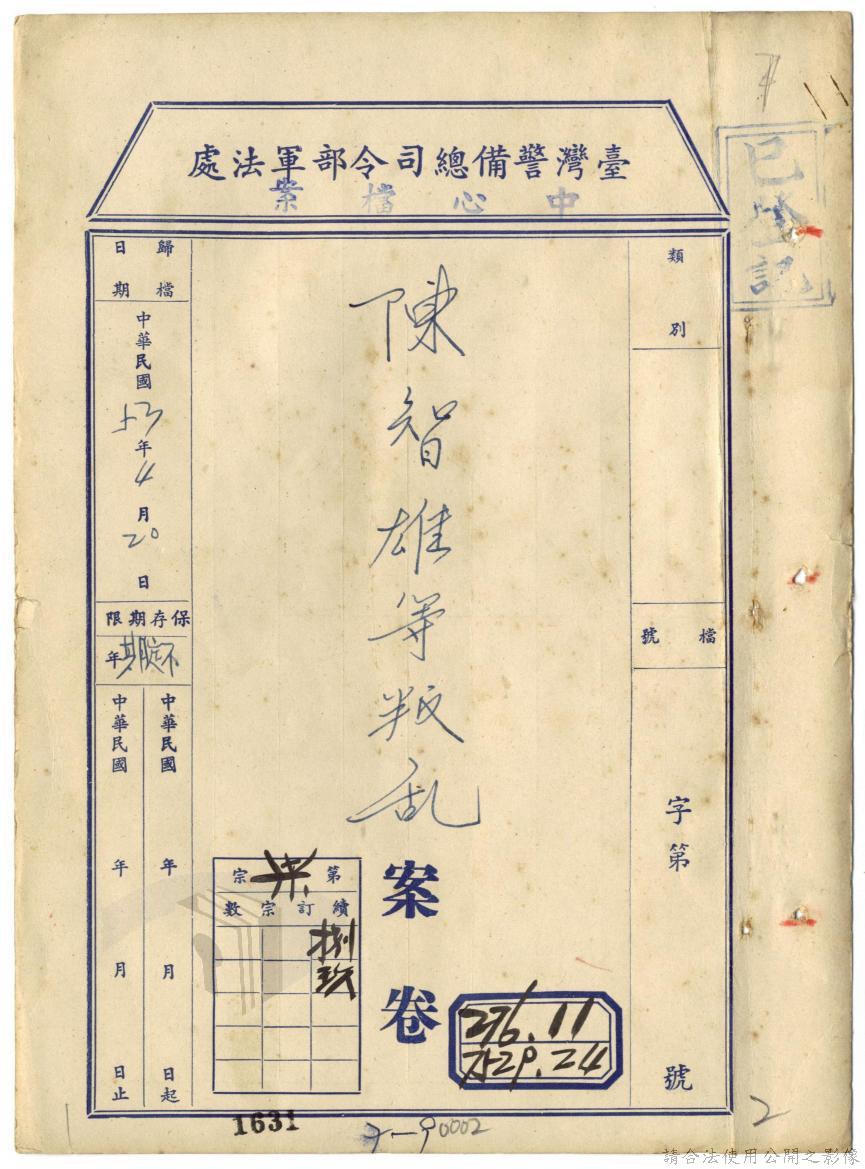 臺灣警備總司令部軍法處
中心檔案
已登記
類別
檔號
字第 號
陳智雄等叛乱
案卷
276.11
7529.24
第柒宗
續訂宗數
捌
玖
歸檔日期
中華民國53年4月20日
保存期限
不定期年
中華民國 年 月 日起
中華民國 年 月 日止
1631
7-9 0002
2
請合法使用公開之影像